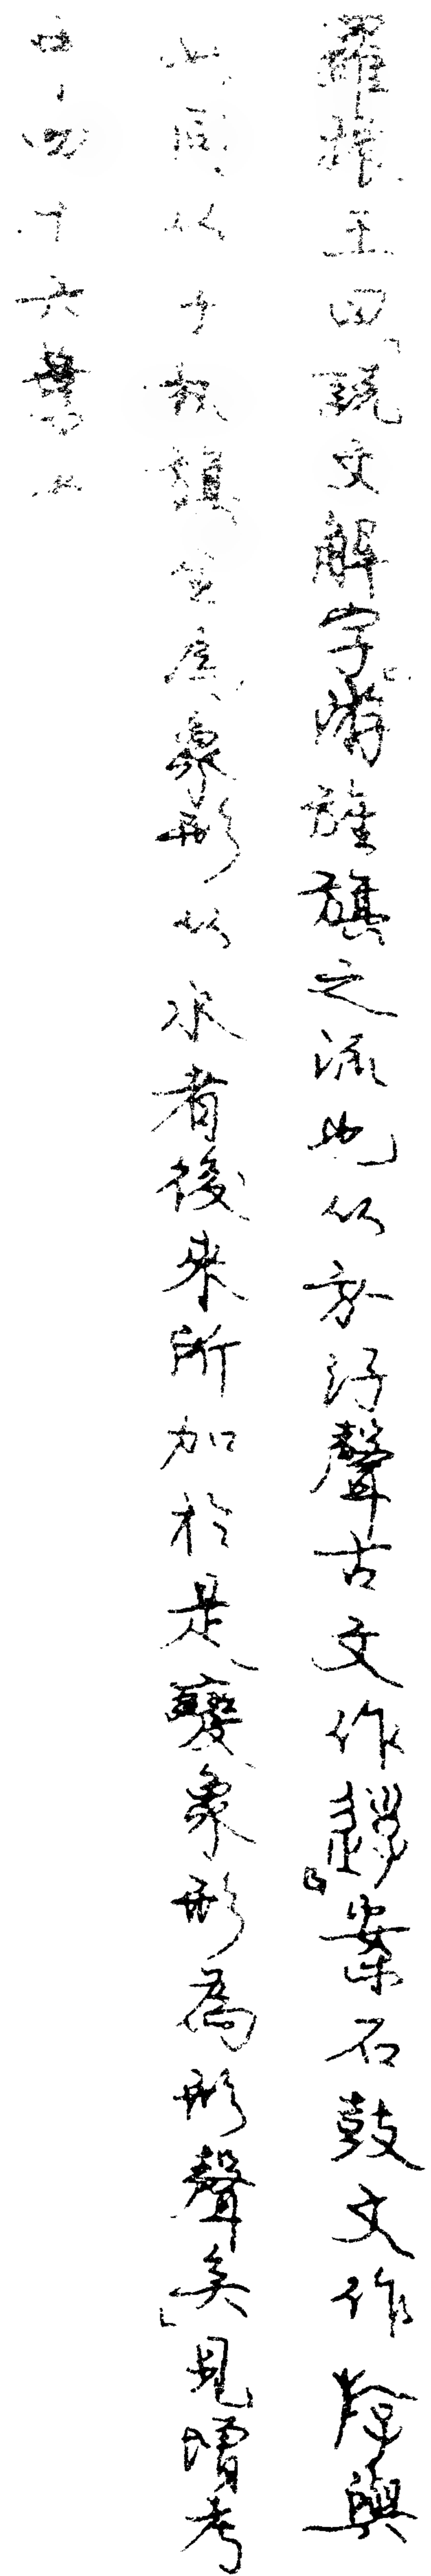 羅振玉曰「說文解字『游旌旗之流也从㫃汓聲古文作𨒰』案石鼓文作斿與
此同从子執旗全為象形从水者後來所加於是變象形為形聲矣」見增考
中四十六葉上